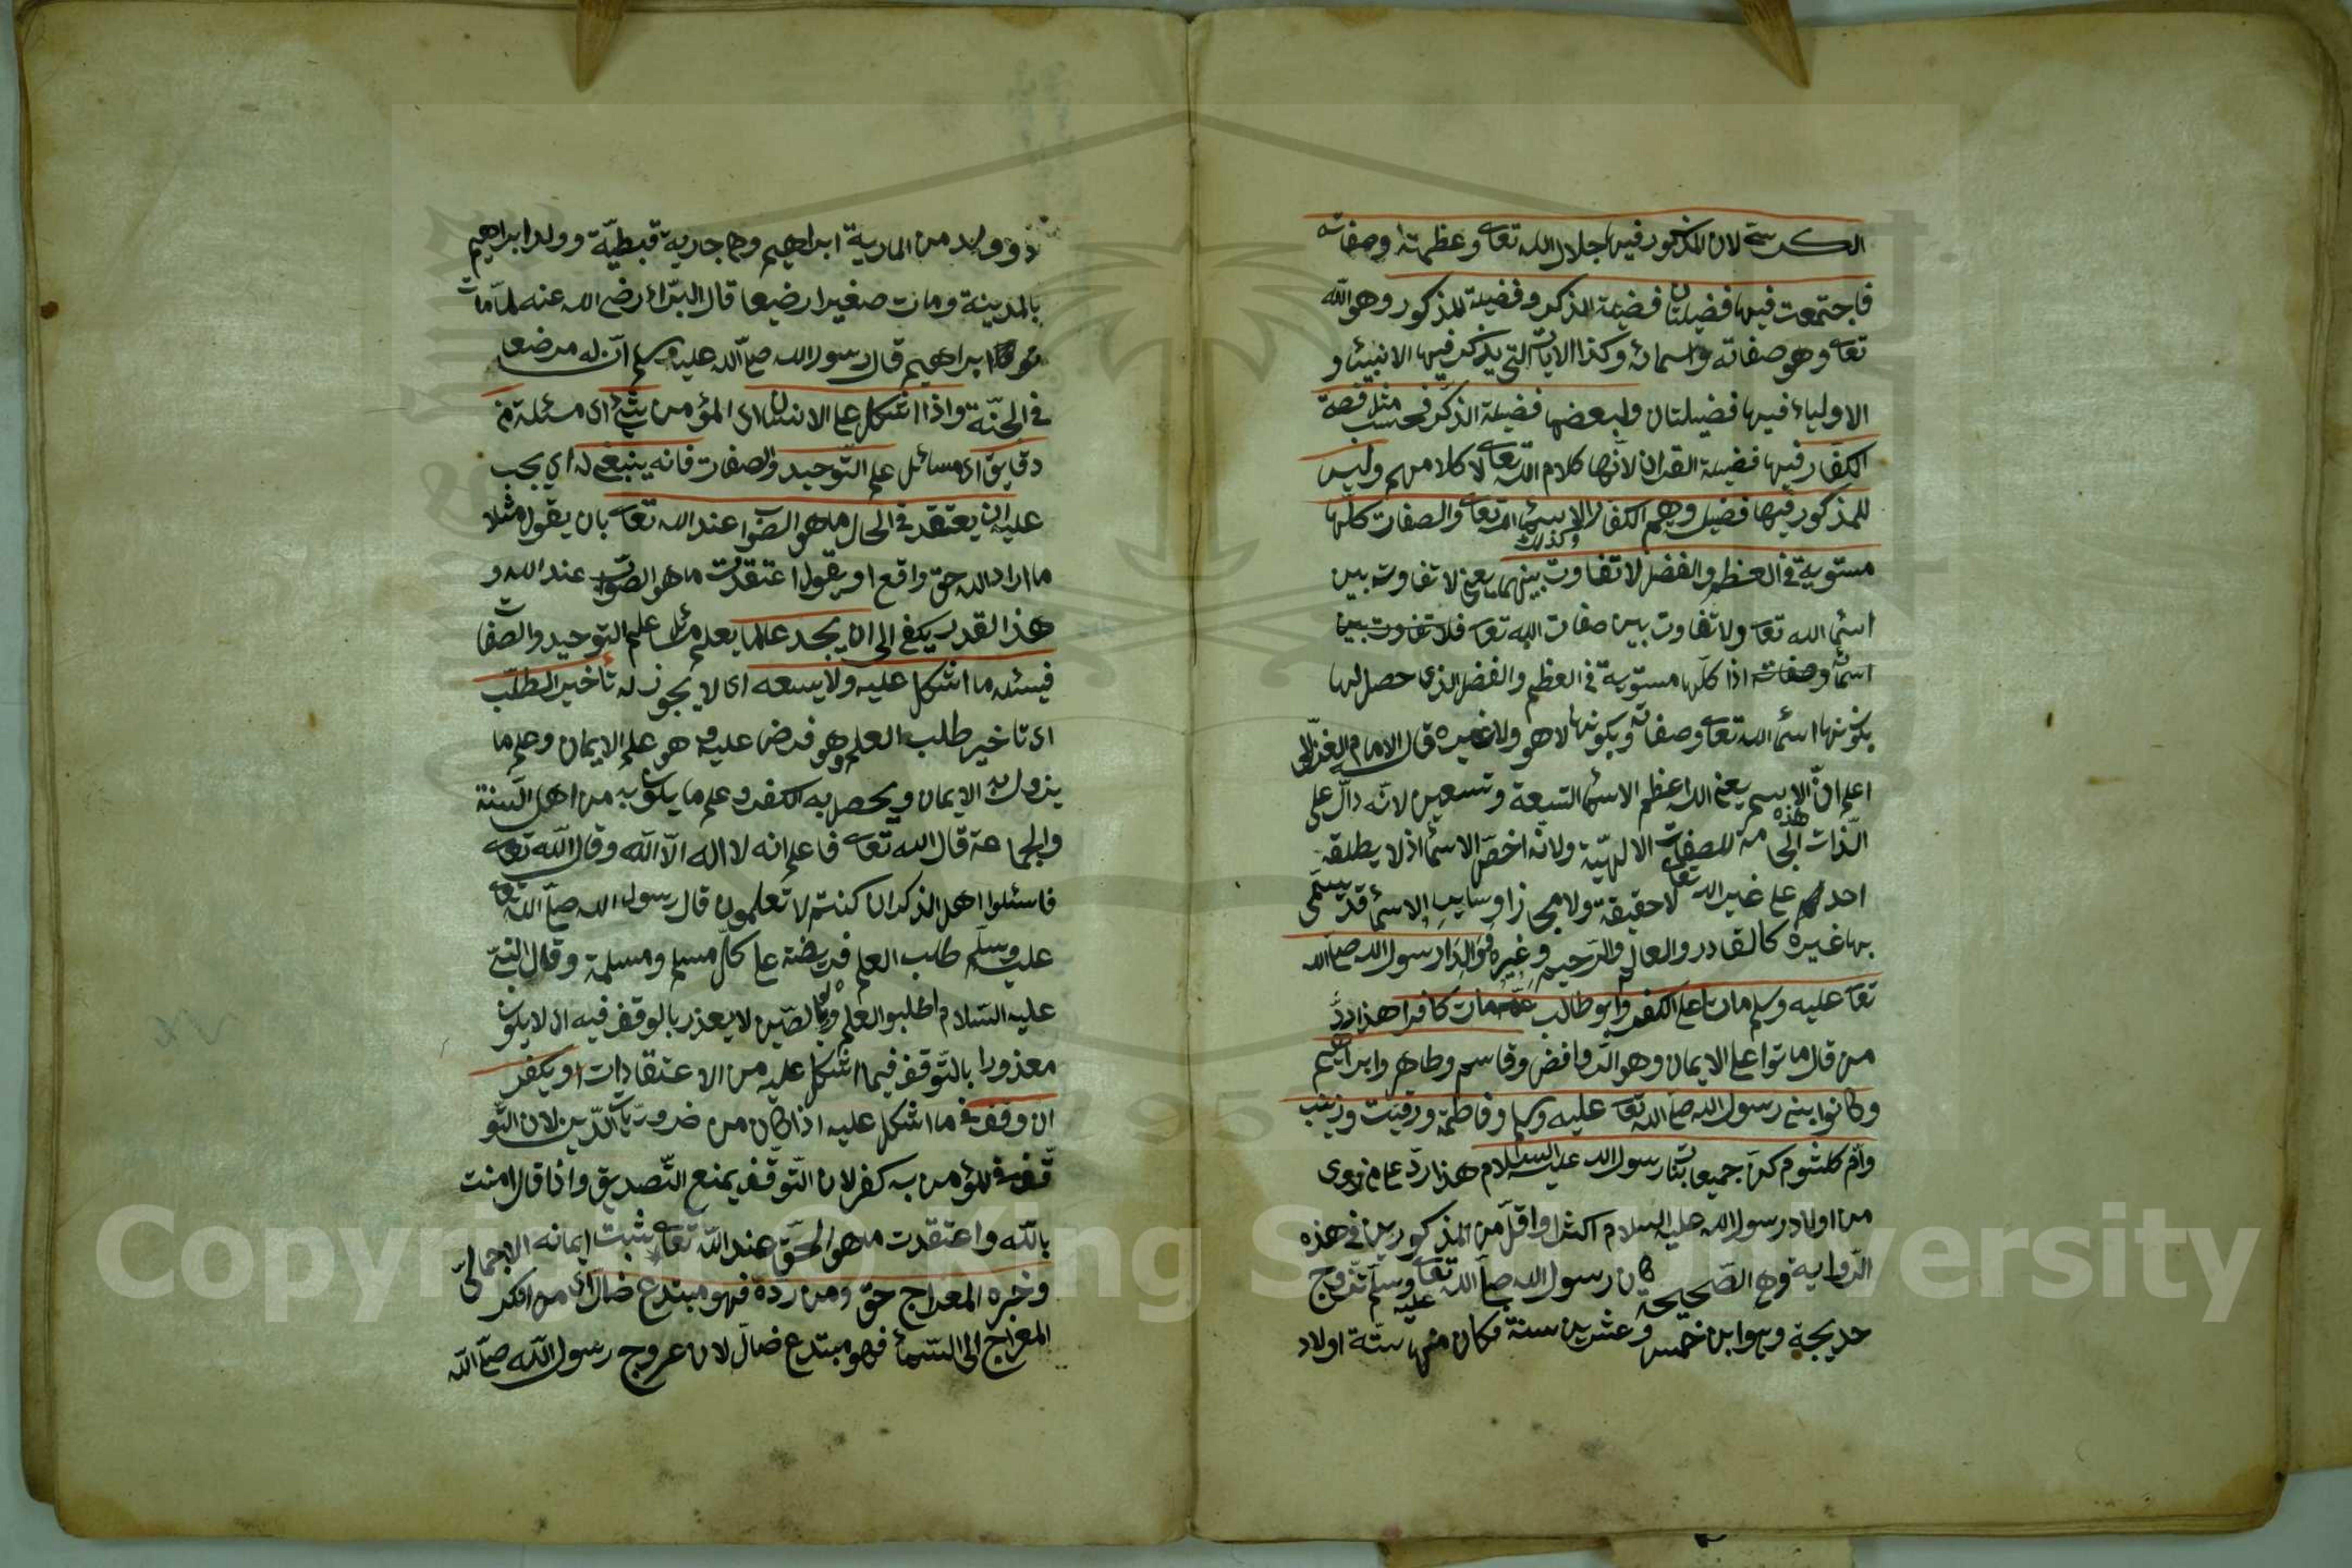 الكرسي لان المذكور فيها جلال الله تعالى وعظمته وصفاته
فاجتمعت فيها فضيلتان فضيلة الذكر وفضيلة المذكور وهو الله
تعالى وهو صفاته واسمائه وكذا الايات التي يذكر فيها الانبيئا و
الاولياء فيها فضيلتان ولبعضها فضيلة الذكر فحسب مثل قصة
الكفار فيها فضيلة القران لانها كلام الله تعالى لا كلامهم وليس
للمذكور فيها فضيل وهم الكفار وكذلك الاسمأ الله تعالى والصفات كلها
مستوية في العظم والفضل لا تفاوت بينهما يعني لا تفاوت بين
اسمأ الله تعالى ولا تفاوت بين صفات الله تعالى فلا تفاوت بين
اسمائه وصفاته اذا كلها مستوية في العظم والفضل الذي حصل لها
بكونها اسمأ الله تعالى وصفاته وبكونها لا هو ولا غيره قال الامام الغزالي
اعلم ان الاسم يعني الله اعظم الاسمأ التسعة وتسعين لانه دال على
الذات الجامة هذه للصفات الالهية ولانه اخص الاسمأ اذ لا يطلقه
احد على غير الله تعالى لا حقيقة ولا مجازا وساير الاسمأ قد يسمى
بها غيره كالقادر والعالم والرحيم وغيره ووالدا رسول الله صلى الله
تعالى عليه وسلم ماتا على الكفر وابو طالب عمه مات كافرا هذا رد
من قال ماتوا على الايمان وهو الروافض وقاسم وطاهر وابراهيم
وكانوا بني رسول الله صلى الله تعالى عليه وسلم وفاطمة ورقية وزينب
وام كلثوم كن جميعا بنات رسول الله عليه السلام هذا رد على من روى
من اولاد رسول الله عليه السلام اكثر او اقل من المذكورين في هذه
الرواية وهي الصحيحة كان رسول الله صلى الله تعالى عليه وسلم تزوج
خديجة وهو ابن خمس وعشرين سنة فكان منها ستة اولاد
وولد من المارية ابراهيم وهي جارية قبطية وولد ابراهيم
بالمدينة ومات صغيرا رضيعا قال البراء رضي الله عنه لما مات
ابراهيم قال رسول الله صلى الله عليه وسلم ان له مرضعا
في الجنة واذا اشكل على الانسان اي المؤمن شئ اي مسئلة من
دقايق اي مسائل علم التوحيد والصفات فانه ينبغي له اي يجب
عليه ان يعتقد في الحال ما هو الصواب عند الله تعالى بان يقول مثلا
ما اراد الله حق واقع او يقول اعتقدت ما هو الصواب عند الله و
هذا القدر يكفي الى ان يجد عالما يعلم مسائل علم التوحيد والصفات
فيسئله ما اشكل عليه ولا يسعه اي لا يجوز له تأخير الطلب
اي تاخير طلب العلم وهو فرض عليه وهو علم الايمان وعلم ما
يزول به الايمان ويحصل به الكفر وعلم ما يكون به من اهل السنة
والجماعة قال الله تعالى فاعلم انه لا اله الا الله وقال الله تعالى
فاسئلوا اهل الذكر ان كنتم لا تعلمون قال رسول الله صلى الله تعالى
عليه وسلم طلب العلم فريضة على كل مسلم ومسلمة وقال النبي
عليه السلام اطلبوا العلم ولو بالصين لا يعذر بالوقف فيه اي لا يكون
معذورا بالتوقف فيما اشكل عليه من الاعتقادات او يكفر
ان وقف في ما اشكل عليه اذا كان من ضروريات الدين لان التو
قف في المؤمن به كفر لان التوقف يمنع التصديق واذا قال امنت
بالله واعتقدت ما هو الحق عند الله تعالى ثبت ايمانه الاجمالي
وخبره المعراج حق ومن رده فهو مبتدع ضال اي من انكر
المعراج الى السمأ فهو مبتدع ضال لان عروج رسول الله صلى الله
Copyright © King Saud University
1957